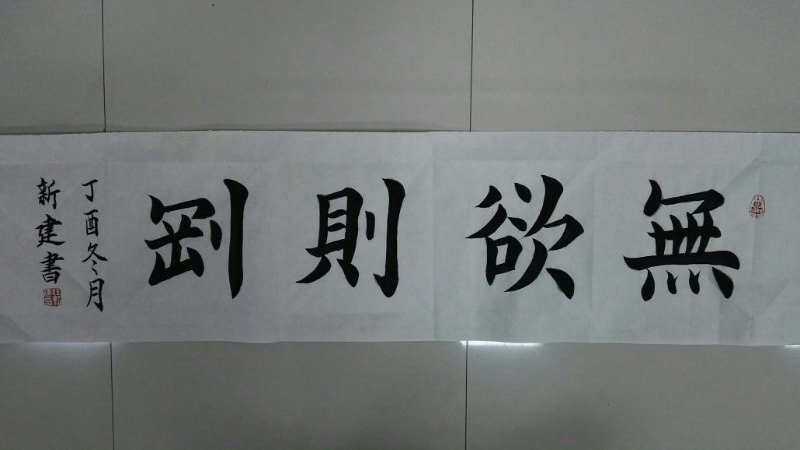 無欲則剛
丁酉冬月
新建書